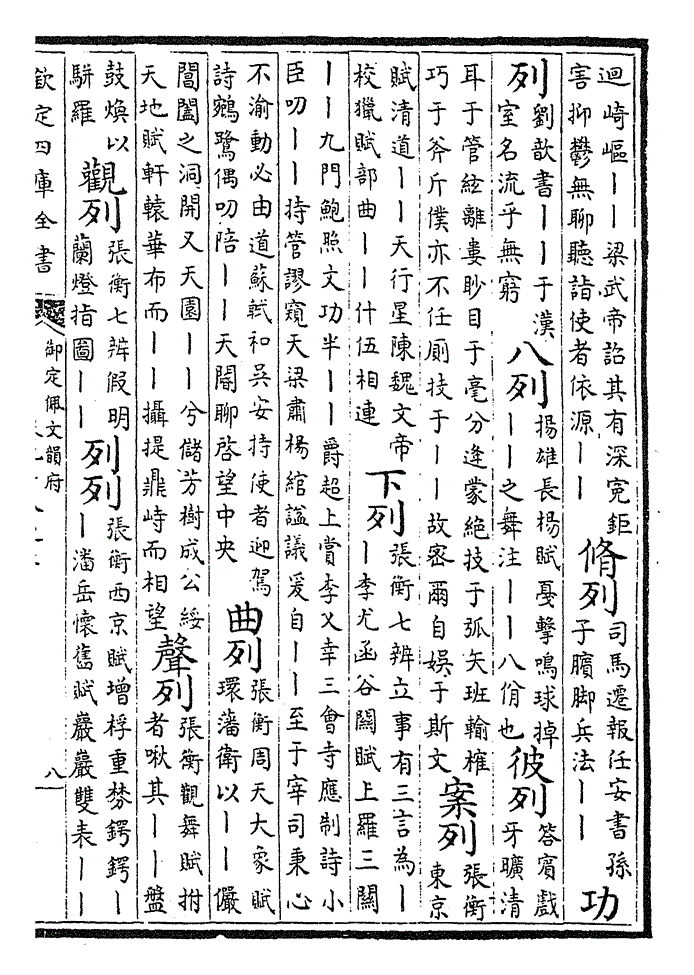 迴﨑嶇丨丨梁武帝詔其有深宄鉅
害抑鬱無聊聽詣使者依源丨丨
脩列
司馬遷報任安書孫
子臏脚兵法丨丨
功
列
劉歆書丨丨于漢
室名流乎無窮
八列
揚雄長楊賦戞擊鳴球掉
丨丨之舞注丨丨八佾也
彼列
答賓戲
牙曠清
耳于管絃離婁眇目于毫分逢蒙絶技于弧矢班輸榷
巧于斧斤僕亦不任厠技于丨丨故密爾自娱于斯文
案列
張衡
東京
賦清道丨丨天行星陳魏文帝
校獵賦部曲丨丨什伍相連
下列
張衡七辨立事有三言為丨
丨李尤函谷關賦上羅三關
丨丨九門鮑照文功半丨丨爵超上賞李乂幸三會寺應制詩小
臣叨丨丨持管謬窺天梁肅楊綰謚議爰自丨丨至于宰司秉心
不渝動必由道蘇軾和吳安持使者迎駕
詩鵷鷺偶叨陪丨丨天閽聊啓望中央
曲列
張衡周天大象賦
環藩衛以丨丨儼
閶闔之洞開又天園丨丨兮儲芳樹成公綏
天地賦軒轅華布而丨丨攝提鼎峙而相望
聲列
張衡觀舞賦拊
者啾其丨丨盤
鼓煥以
駢羅
觀列
張衡七辨假明
蘭燈指圖丨丨
列列
張衡西京賦增桴重棼鍔鍔丨
丨潘岳懷舊賦巖巖雙表丨丨
欽定四庫全書
御定佩文韻府
八